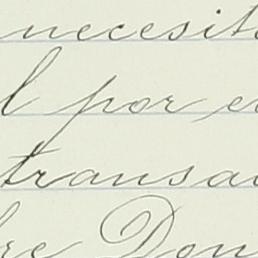 necesit
l por e
transa
re Don